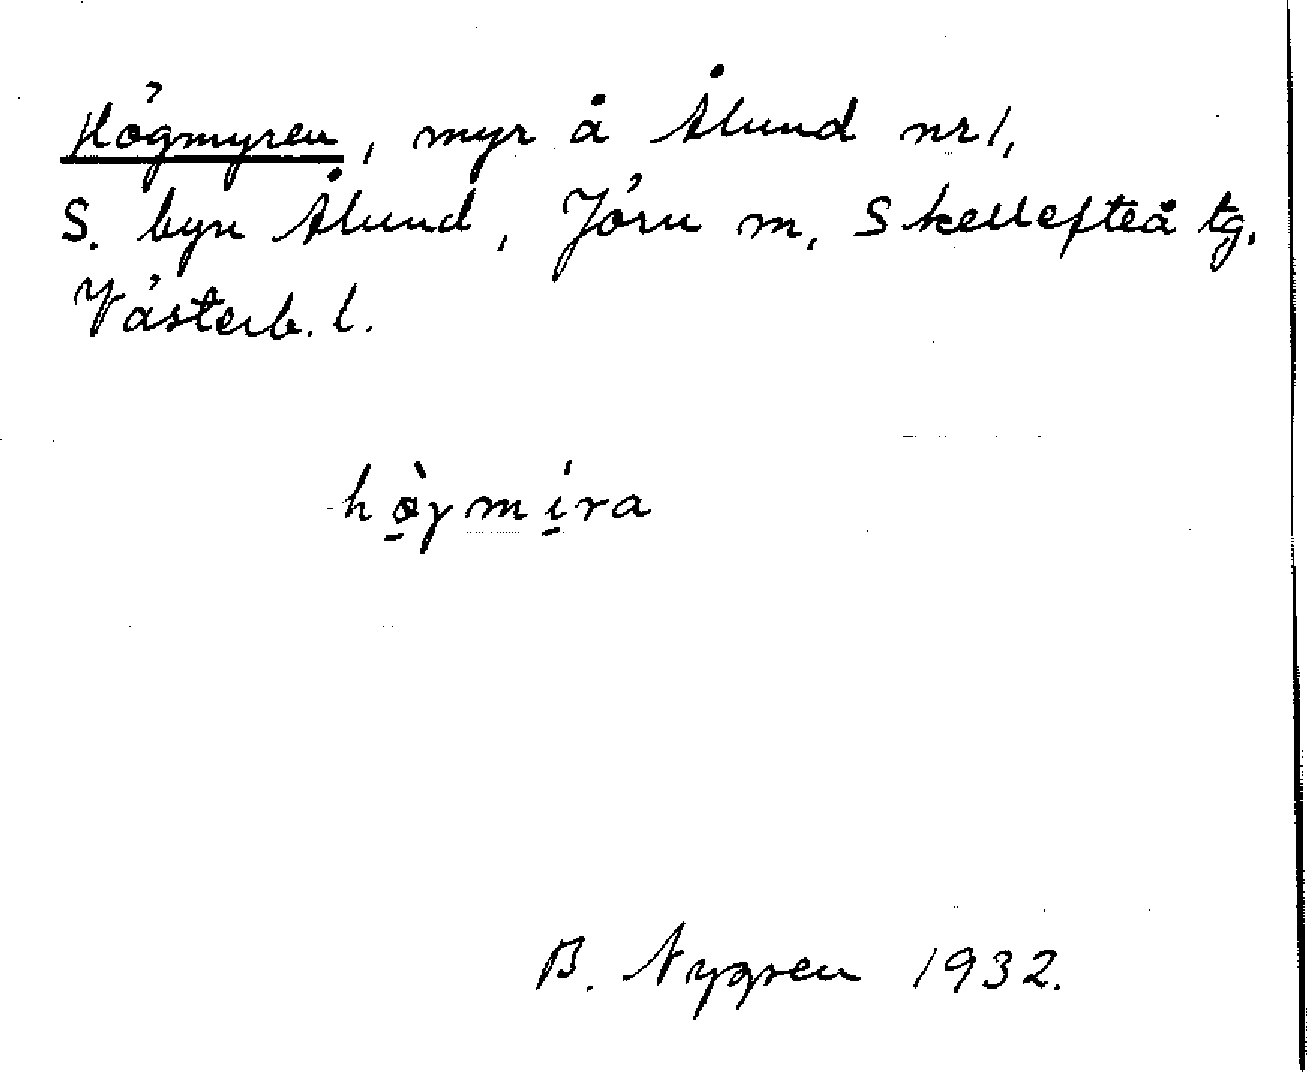 Högmyren, myr å Ålund nr 1,
S. byn Ålund, Jörn sn, Skellefteå tg,
Västerb. l.
hø̱̀gmí̱ra
B. Nygren 1932.